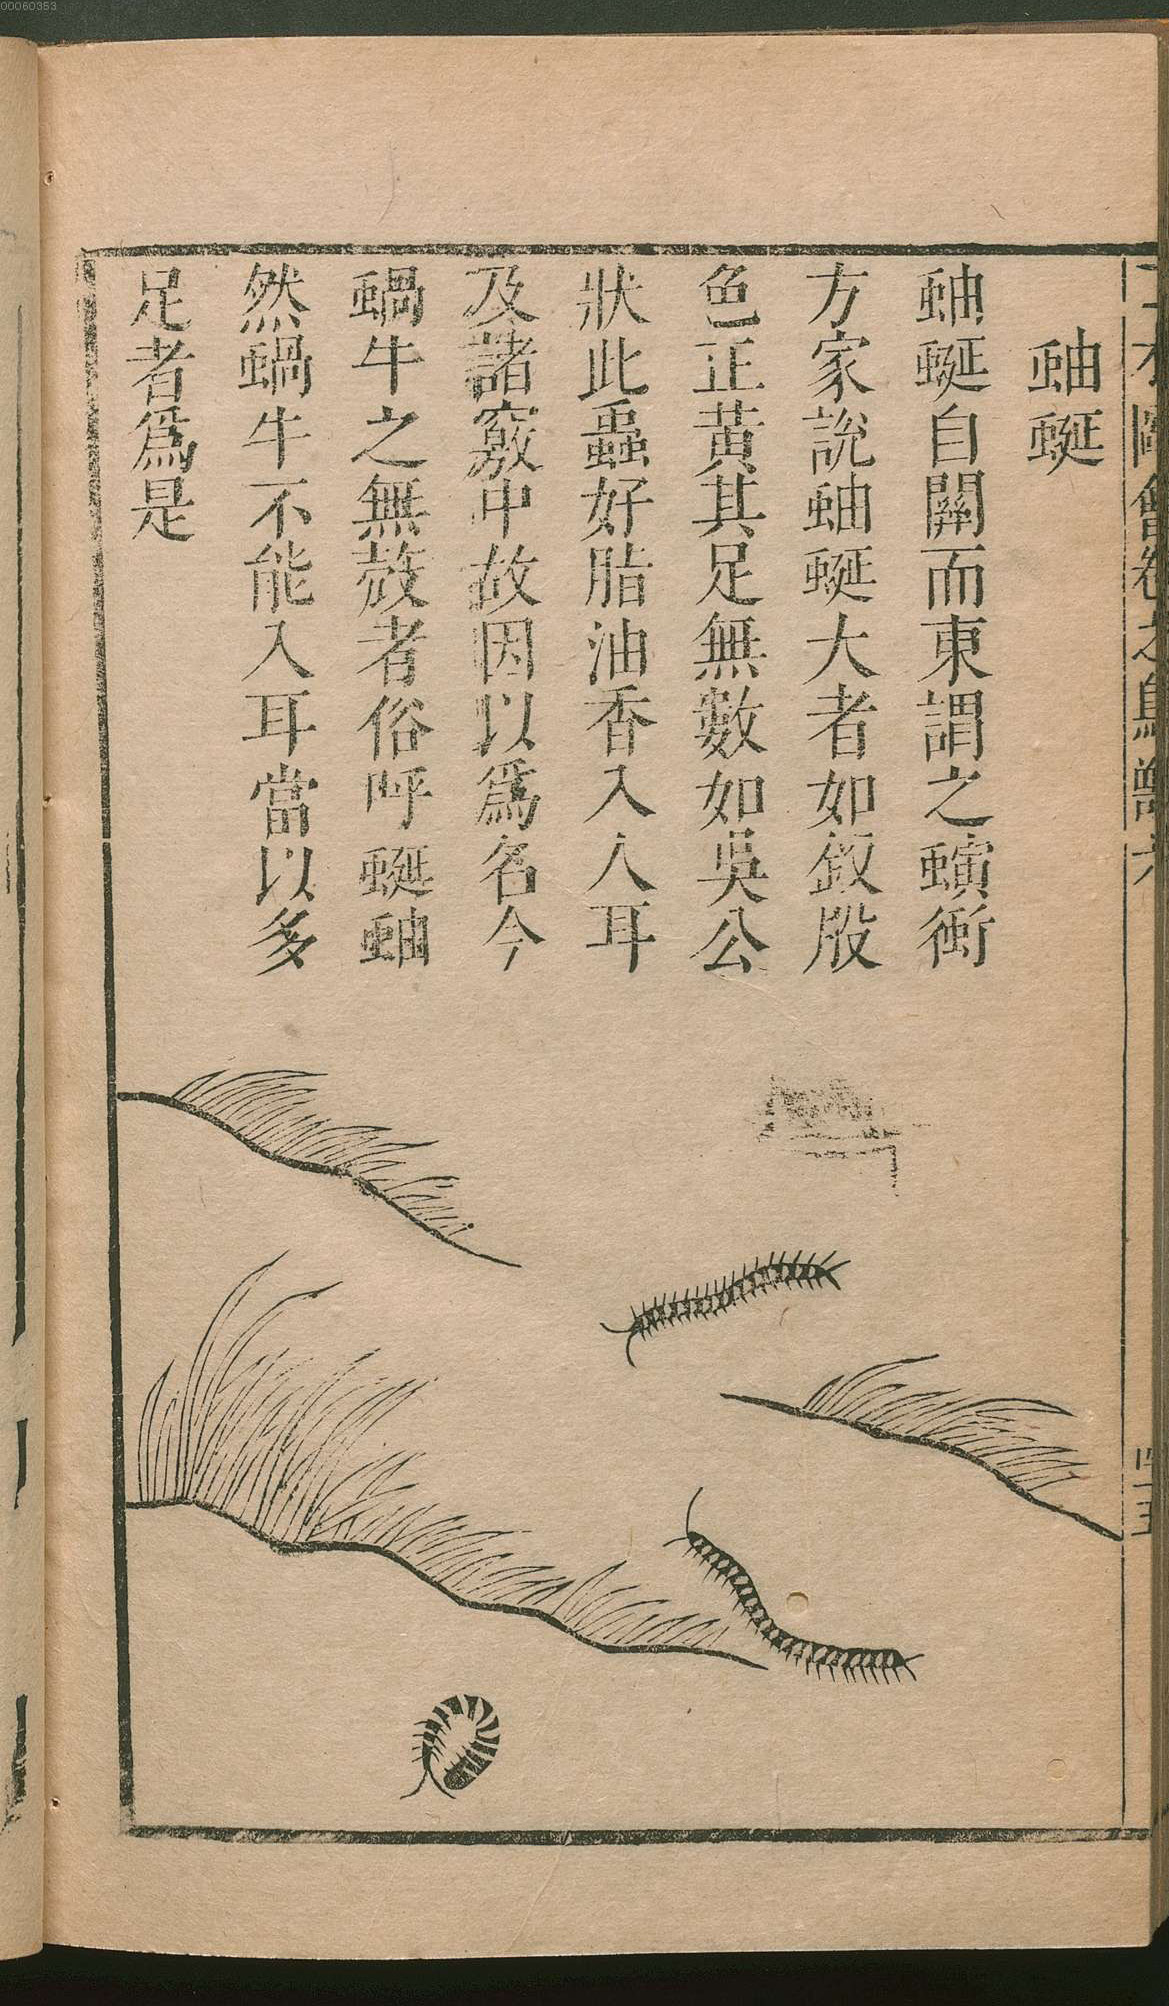 00060353
三才圖會卷之鳥獸六
蚰蜒
蚰蜒自關而東謂之螾䘖
方家說蚰蜒大者如釵股
色正黃其足無數如吳公
狀此蟲好脂油香入人耳
及諸竅中故因以爲名今
蝸牛之無殼者俗呼蜒蚰
然蝸牛不能入耳當以多
足者爲是
四十五